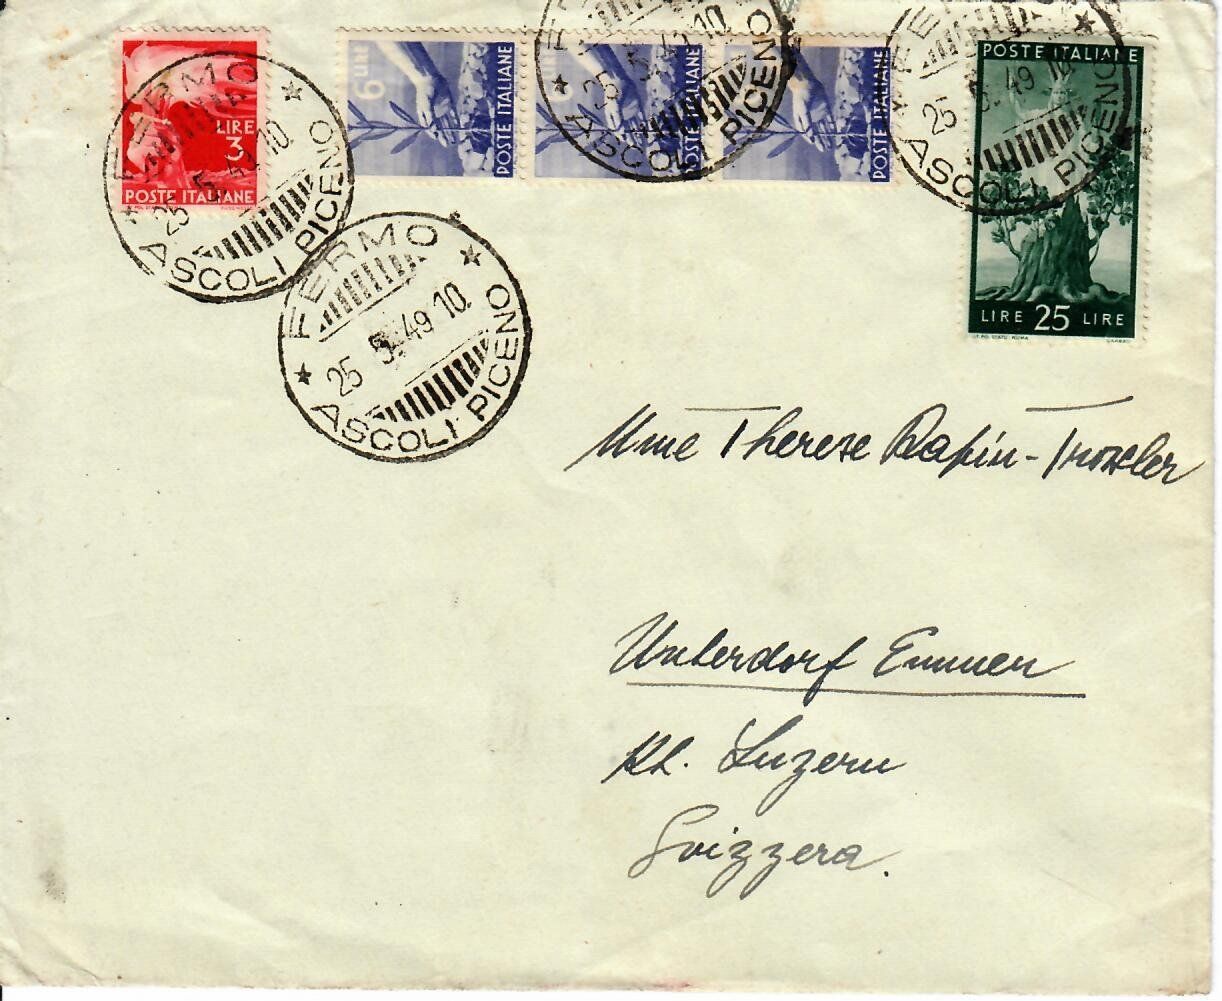 LIRE
3
POSTE ITALIANE
6 LIRE
POSTE ITALIANE
6
POSTE ITALIANE
POSTE ITALIANE
POSTE ITALIANE
LIRE 25 LIRE
FERMO
25 5.49 10
ASCOLI PICENO
FERMO
25 5.49 10.
ASCOLI PICENO
25 5.49 10
ASCOLI PICENO
25 5.49 10
ASCOLI PICENO
Mme Therese Rapin-Troxler
Unterdorf Emmen
Kt. Luzern
Svizzera.